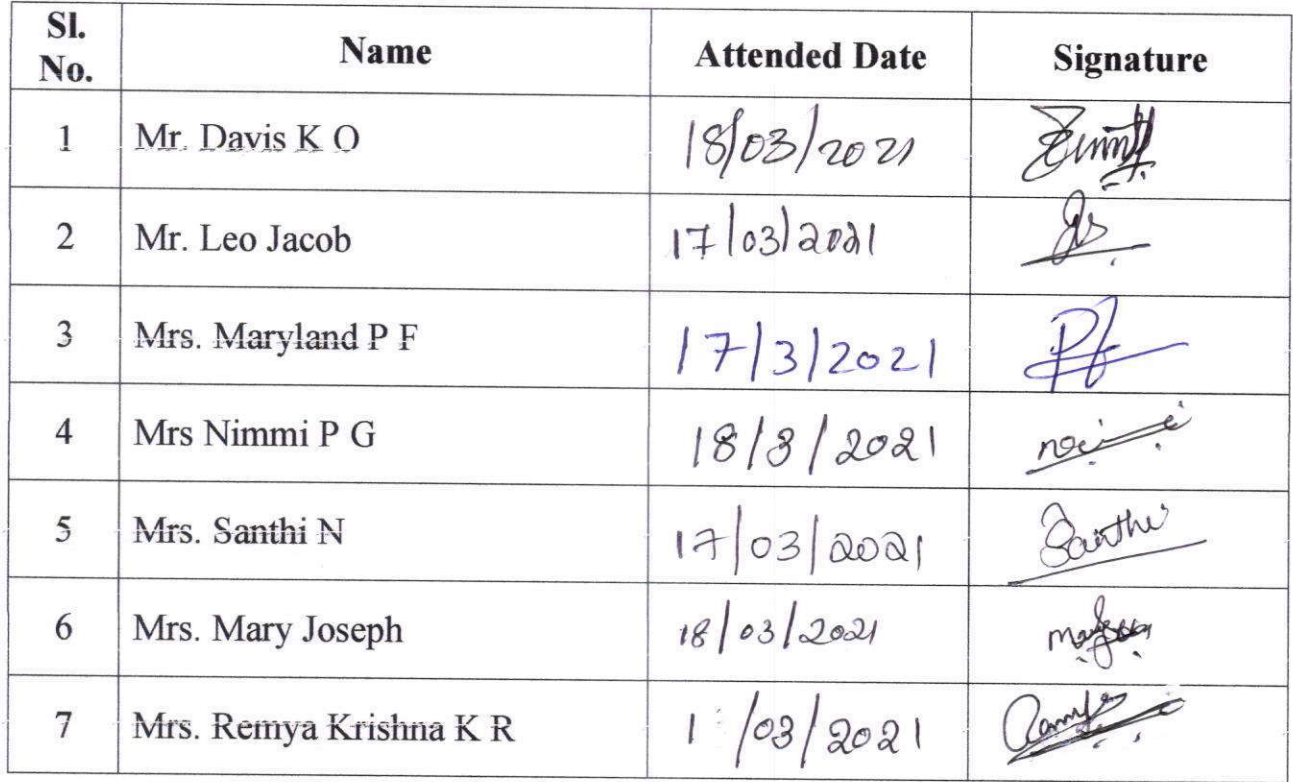 Sl. No. Name Attended Date Signature
1 Mr. Davis K O 18/03/2021
2 Mr. Leo Jacob 17/03/2021
3 Mrs. Maryland P F 17/3/2021 Pf
4 Mrs Nimmi P G 18/3/2021
5 Mrs. Santhi N 17/03/2021 Santhi
6 Mrs. Mary Joseph 18/03/2021
7 Mrs. Remya Krishna K R /03/2021